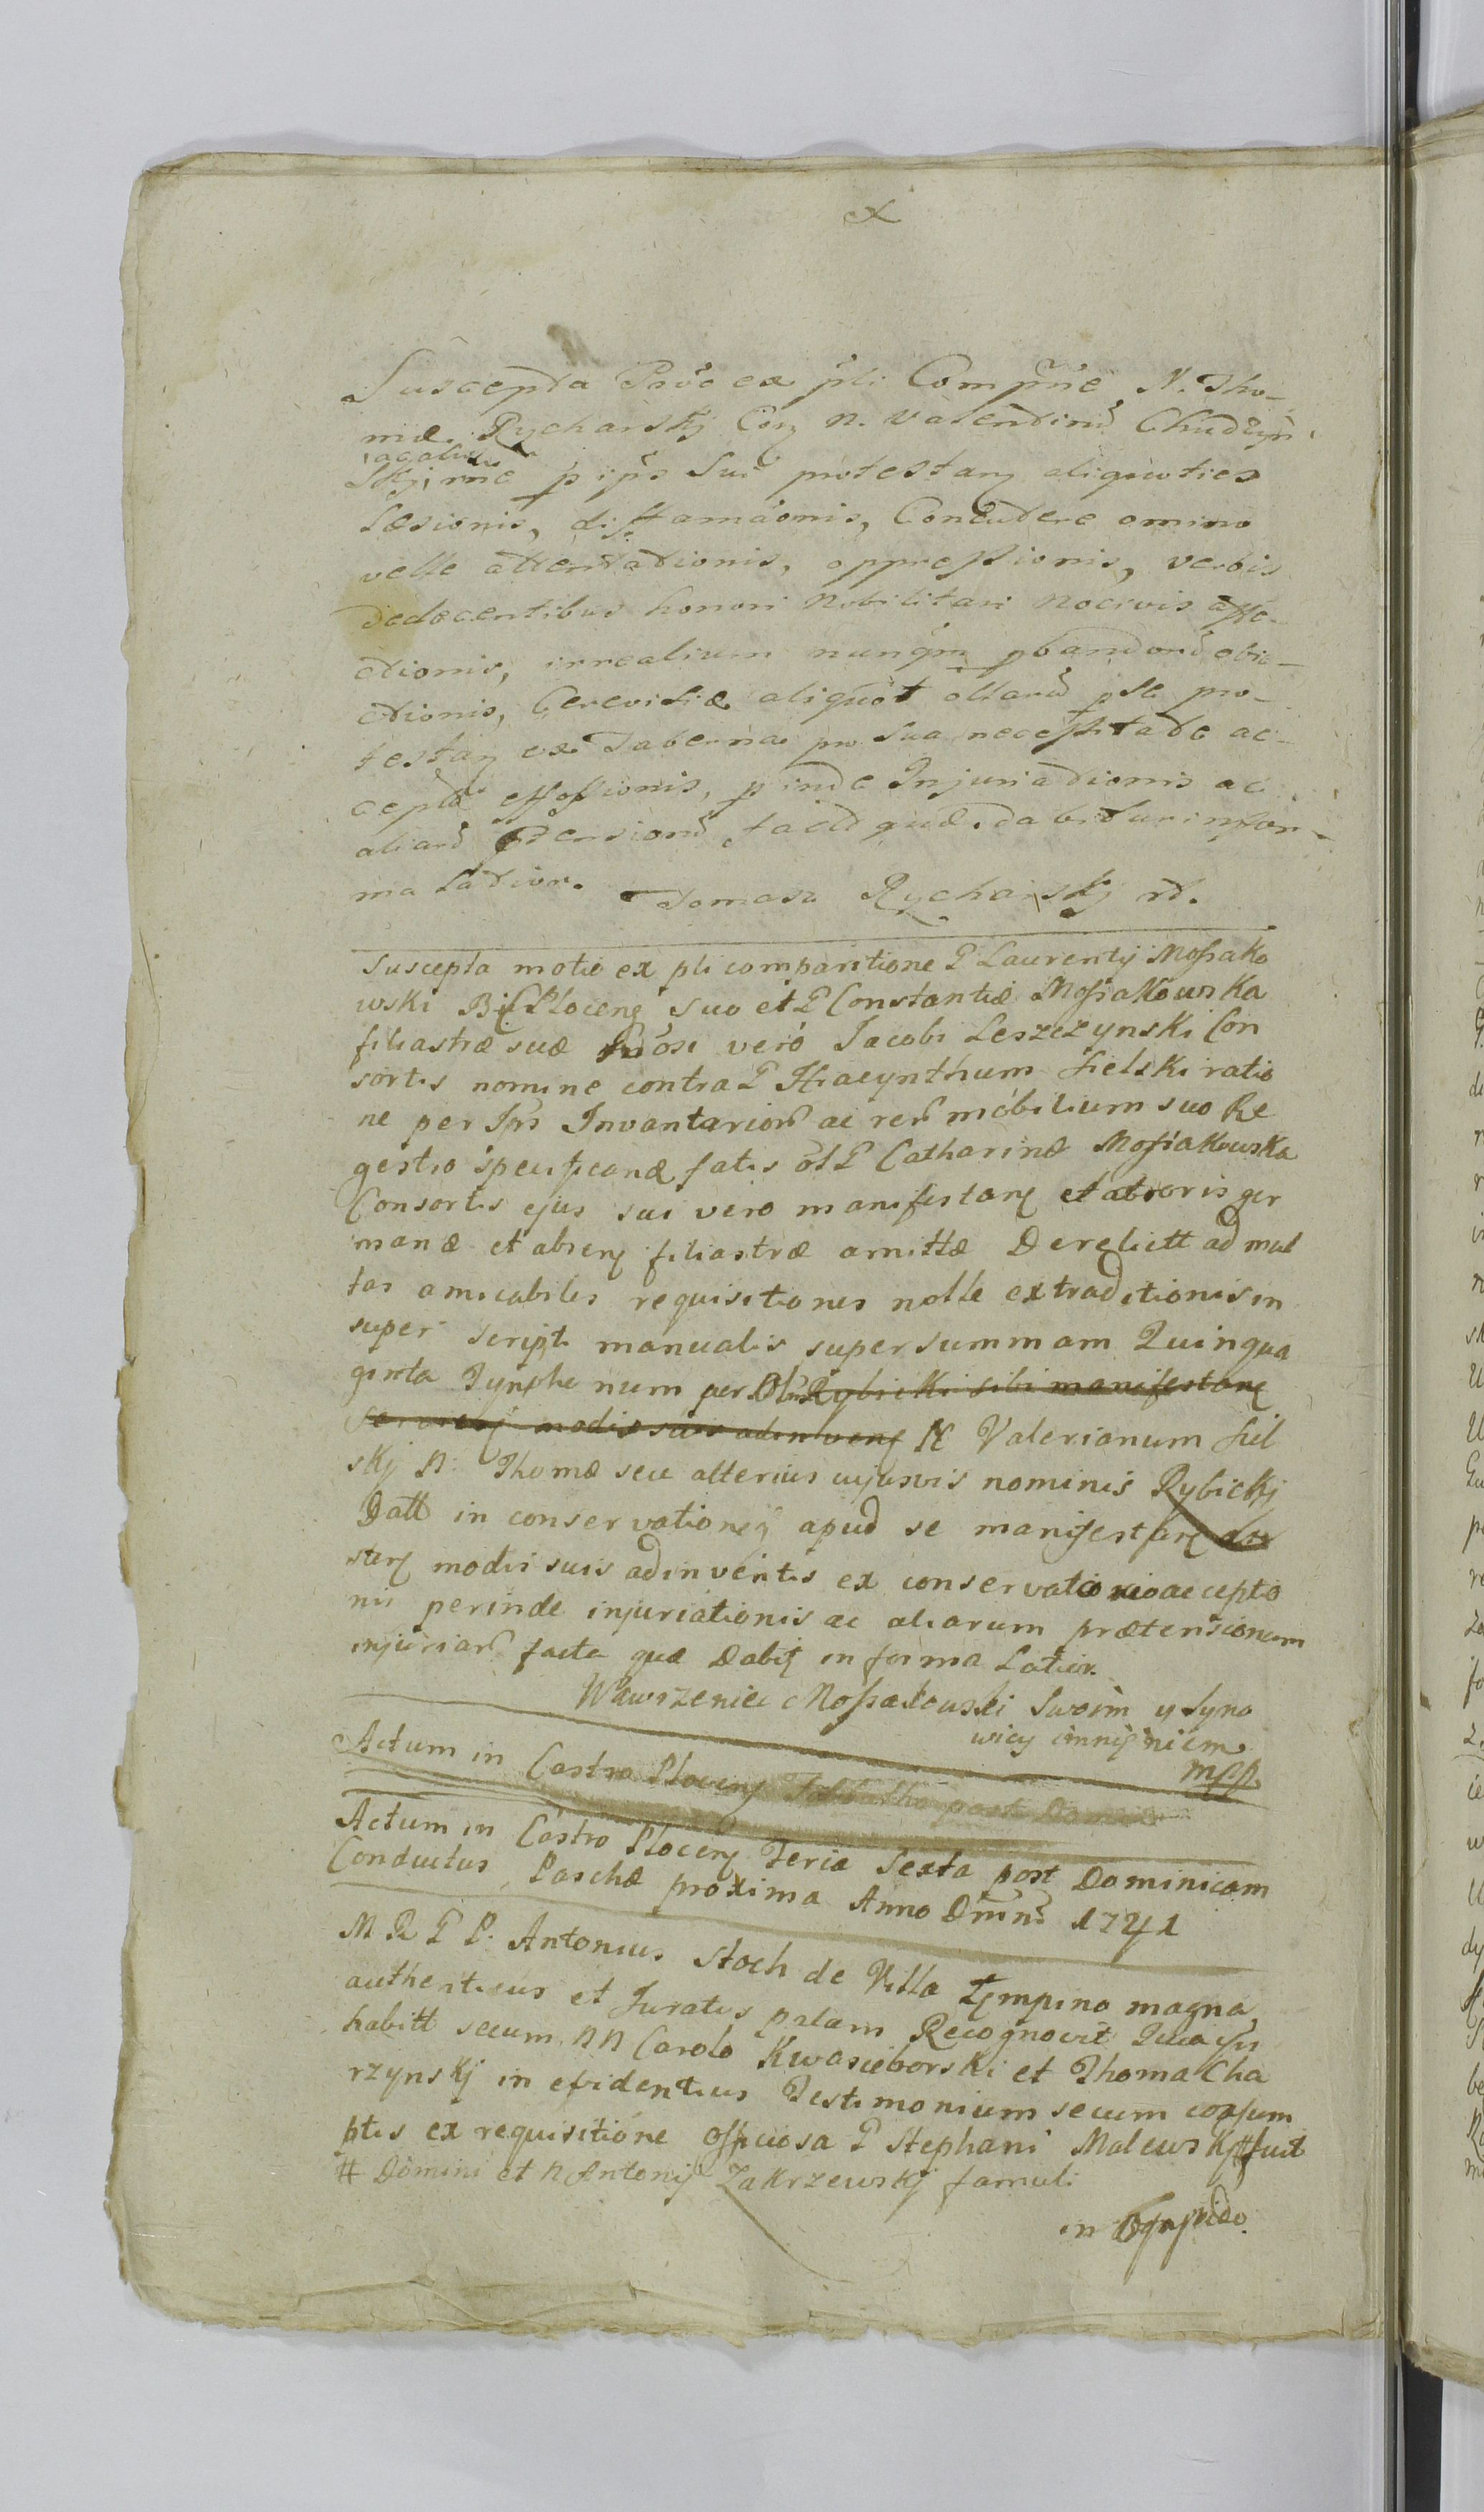 Suscepta Proc ex pli Compne N. Tho-
mæ Rycharskj Con N. Valentinu Chudzyn
skj, rne p ips Sui protestan aliquoties
Læsionis, diffamaonis, Concutere omino
velle attentationis, oppressionis, verbis
dedecentibus honori Nobilitari nocivis affe-
ctionis, irrealium nunqm pbandoru obie-
ctionis, Cerevisiæ aliquot ollaru p se pro-
testan ex Taberna pro sua necessitate ac-
cepta effossionis, p inde Injuriationis ac
aliaru Ptensionu facta quæ dabitur in for-
ma latior.
Tomasz Rycharskj rt.
Suscepta motio ex pli comparitione G Laurentij Mossako
wski Bif Plocens suo et G Constantiæ Mossakowska
filiastræ suæ Gnosi vero Jacobi Leszczynski Con
sortis nomine contra G Hiacynthum Sielski ratio
ne per Ips Inventarior ac rer mobilium suo Re
gestro specificand fatis ol G Catharinæ Mossakowska
Consortis ejus sui vero manifestans et sororis ger
manæ et absens filiastræ amittæ Derelictt ad mul
tas amicabiles requisitiones nolle extraditionis in
super script manualis super summam Quinqua
ginta Tynphe num per Obls Rybicki sibi manifestans
servien modis suis adinvens N Valerianum Siel
skj N. Thomæ seu alterius cujusvis nominis Rybickj
Datt in conservationem apud se manifestans
stens modis suis adinventis ex conservatio accepto
nis perinde injuriationis ac aliarum prætensionum
injuriar facta quæ Dabit in forma Latior.
Wawrzeniec Mossakouski Swoim y Syno
wicy imnieniem
mpp
Actum in Castro Plocens Sabbatho post Domin
Actum in Castro Plocens Feria Sexta post Dominicam
Conductus Paschæ proxima Anno Dmni 1741
M R G P. Antonius Stoch de Villa Łempino magna
authenticus et Juratus palam Recognovit Quia ipse
habitt secum NN Carolo Kwasieborski et Thoma Cha
rzynskj in evidentius Testimonium secum consum
ptis ex requisitione officiosa G Stephani Malewskj # fuit
# Domini et N Antonij Zakrzewskj famuli
in Oppido